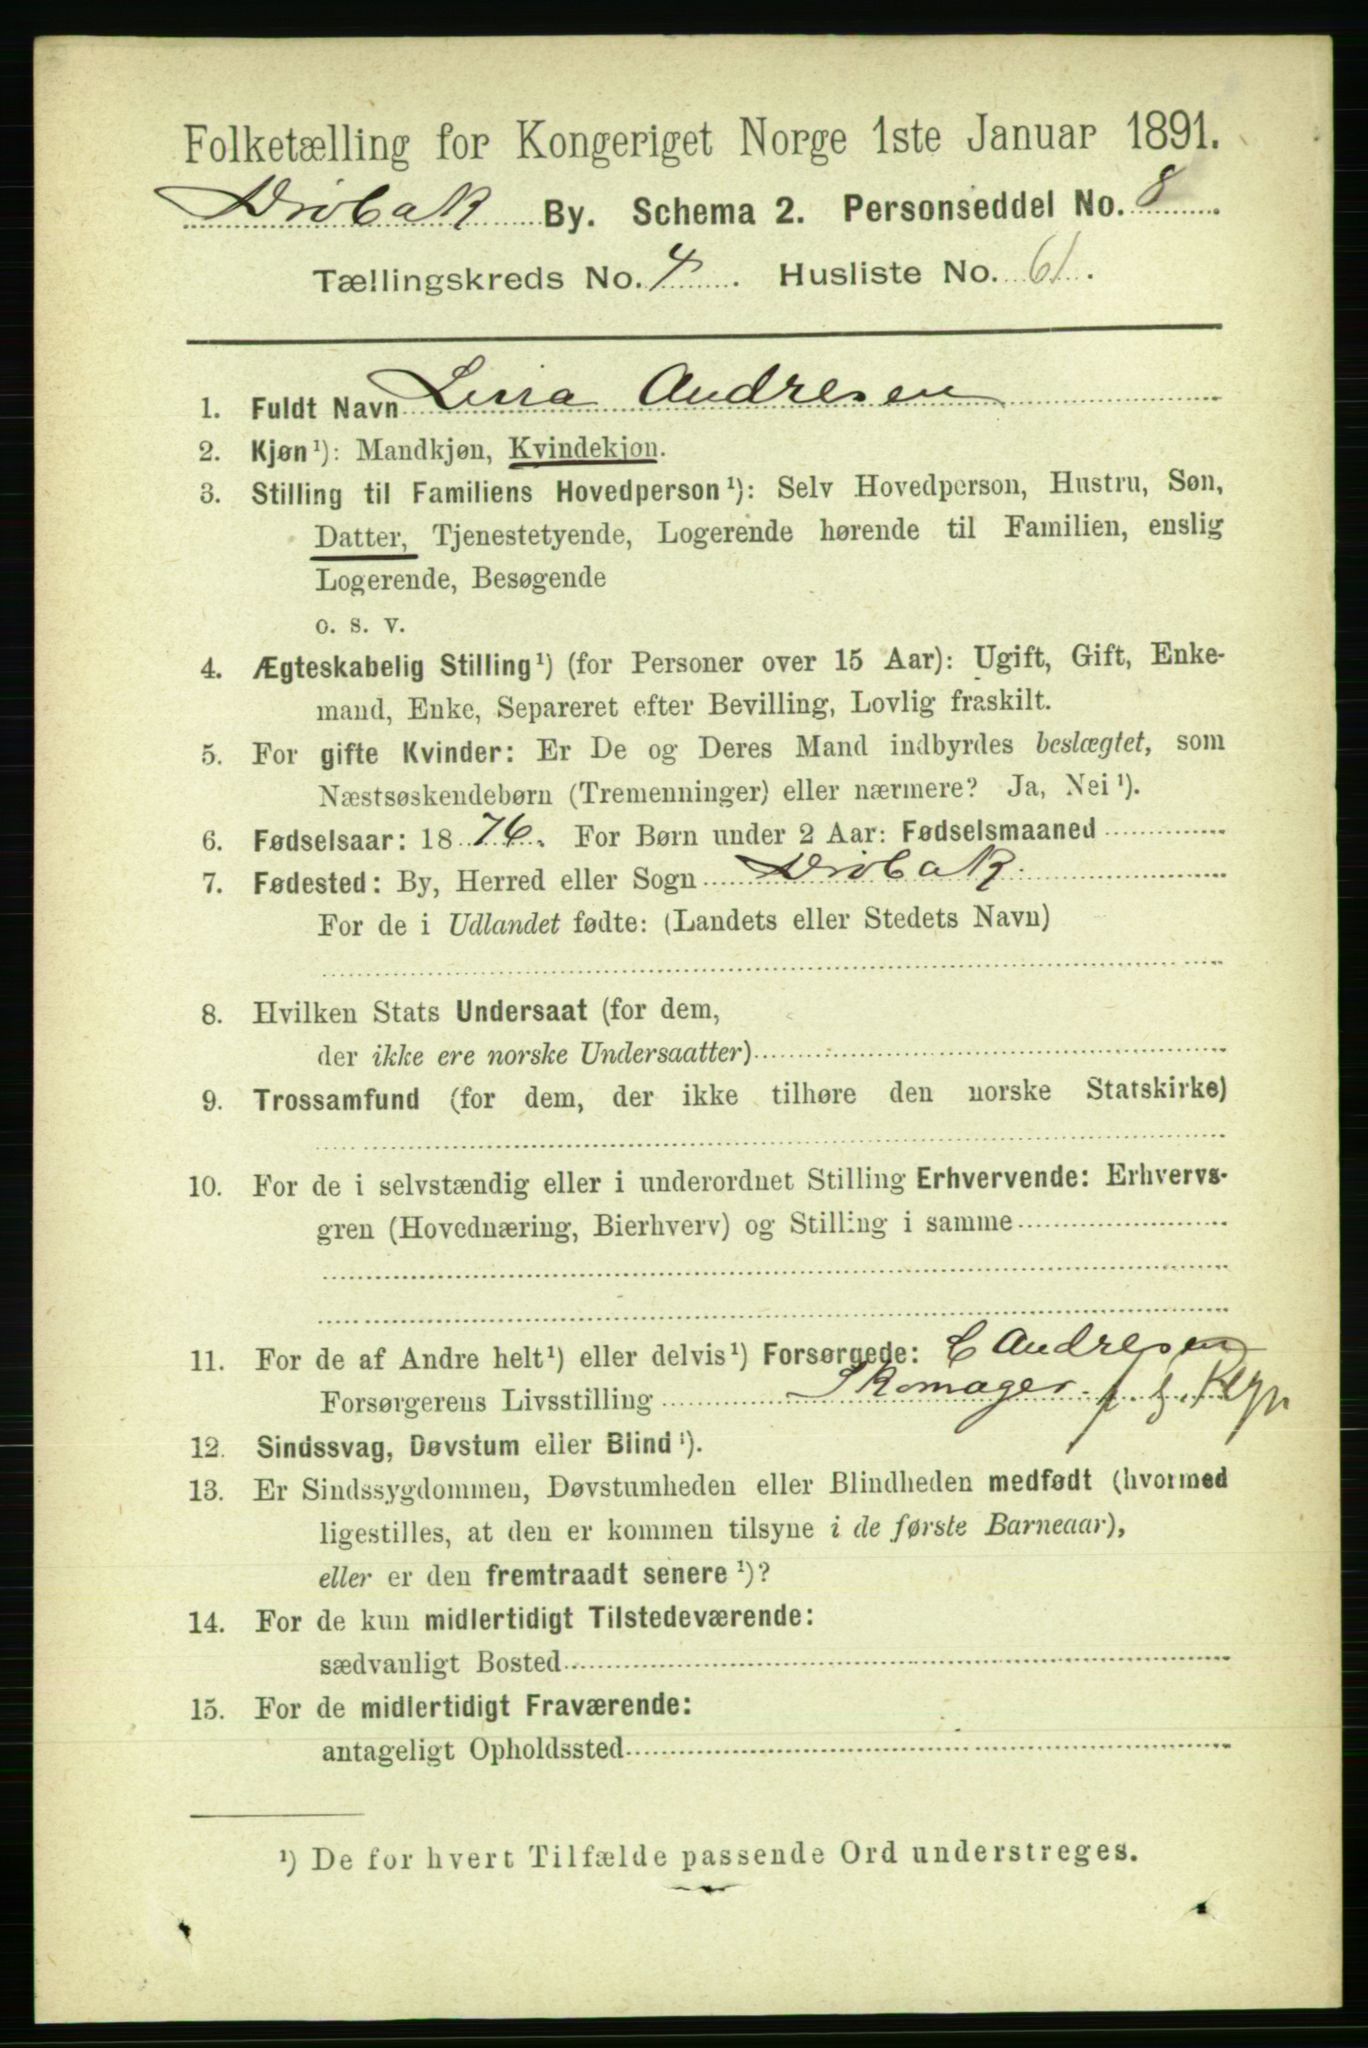 Folketælling for Kongeriget Norge 1ste Januar 1891.
Drøbak By. Schema 2. Personseddel No. 8
Tællingskreds No. 4. Husliste No. 61.
1. Fuldt Navn Lina Andresen
2. Kjøn¹): Mandkjøn, Kvindekjøn.
3. Stilling til Familiens Hovedperson¹): Selv Hovedperson, Hustru, Søn,
Datter, Tjenestetyende, Logerende hørende til Familien, enslig
Logerende, Besøgende
o. s. v.
4. Ægteskabelig Stilling¹) (for Personer over 15 Aar): Ugift, Gift, Enke-
mand, Enke, Separeret efter Bevilling, Lovlig fraskilt.
5. For gifte Kvinder: Er De og Deres Mand indbyrdes beslægtet, som
Næstsøskendebørn (Tremenninger) eller nærmere? Ja, Nei¹).
6. Fødselsaar: 1876. For Børn under 2 Aar: Fødselsmaaned
7. Fødested: By, Herred eller Sogn Drøbak.
For de i Udlandet fødte: (Landets eller Stedets Navn)
8. Hvilken Stats Undersaat (for dem,
der ikke ere norske Undersaatter)
9. Trossamfund (for dem, der ikke tilhøre den norske Statskirke)
10. For de i selvstændig eller i underordnet Stilling Erhvervende: Erhvervs-
gren (Hovednæring, Bierhverv) og Stilling i samme
11. For de af Andre helt¹) eller delvis¹) Forsørgede: C Andresen
Forsørgerens Livsstilling Skomager
12. Sindssvag, Døvstum eller Blind¹).
13. Er Sindssygdommen, Døvstumheden eller Blindheden medfødt (hvormed
ligestilles, at den er kommen tilsyne i de første Barneaar),
eller er den fremtraadt senere¹)?
14. For de kun midlertidigt Tilstedeværende:
sædvanligt Bosted
15. For de midlertidigt Fraværende:
antageligt Opholdssted
¹) De for hvert Tilfælde passende Ord understreges.